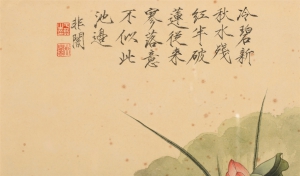 冷碧新
秋水殘
紅半破
蓮從來
寥落意
不似此
池邊
非闇